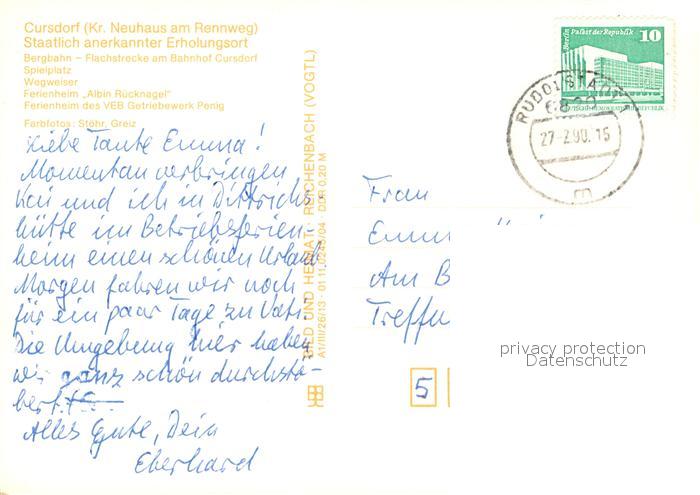 Cursdorf (Kr. Neuhaus am Rennweg)
Staatlich anerkannter Erholungsort
Bergbahn – Flachstrecke am Bahnhof Cursdorf
Spielplatz
Wegweiser
Ferienheim „Albin Rücknagel"
Ferienheim des VEB Getriebewerk Penig
Farbfotos: Stöhr, Greiz
Liebe Tante Emma!
Momentan verbringen
Kai und ich in Dittrichs-
hütte im Betriebsferien-
heim einen schönen Urlaub
Morgen fahren wir noch
für ein paar Tage zu Vati.
Die Umgebung hier haben
wir ganz schön durchstö-
bert.
Alles Gute, Dein
Eberhard
BILD UND HEIMAT REICHENBACH (VOGTL)
A1/III/26/13 01 11 0245/04 DDR 0,20 M
Berlin Palast der Republik
10
DEUTSCHE DEMOKRATISCHE REPUBLIK
RUDOLSTADT
6820
27-2.90.15
m
Frau
Emm
Am B
Treffu
5
privacy protection
Datenschutz